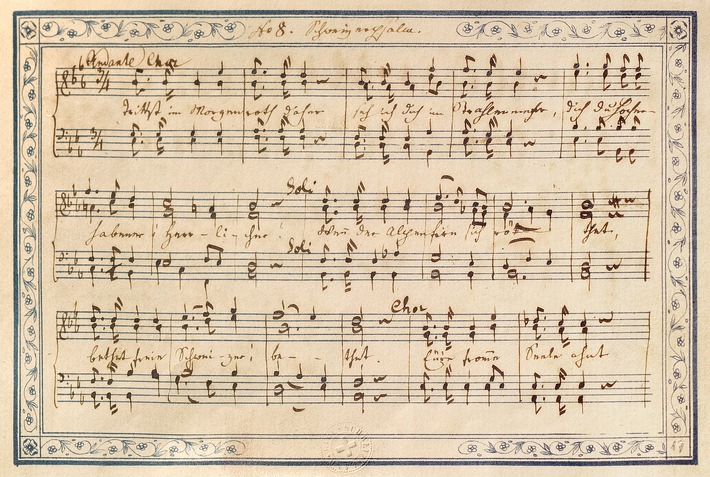 No 8. Schweizerpsalm.
Andante Chor
3/4
Trittst im Morgenroth daher seh ich dich im Strahlenmeer, dich du Hocher-
3/4
Soli
habener! Herr-li-cher! Wenn der Alpenfirn sich röthet,
Soli
Chor
bethet freie Schwei-zer! be- - thet. Eure fromme Seele ahnt